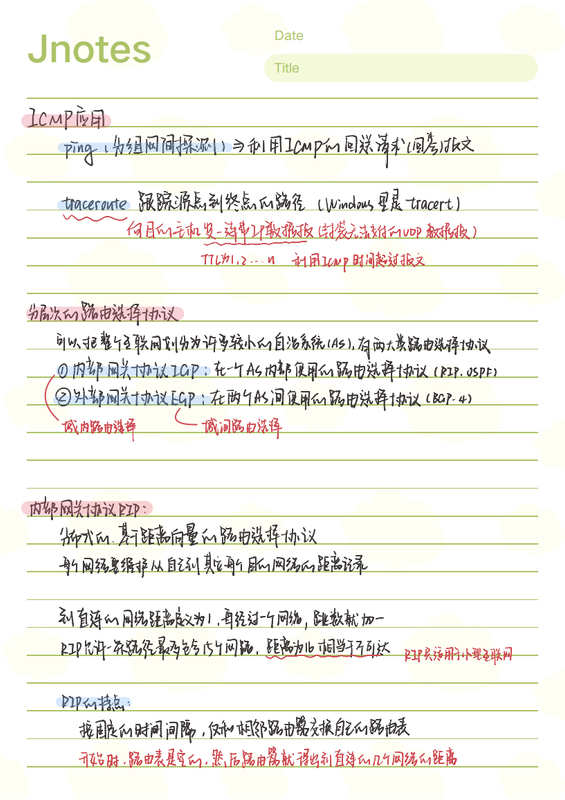 Jnotes
Date
Title
ICMP应用
ping（分组网间探测）⇒ 利用ICMP的回送请求(回答)报文
traceroute 跟踪源点到终点的路径（Windows里是tracert）
向目的主机发一连串IP数据报（封装无法交付的UDP数据报）
TTL为1,2...n 利用ICMP时间超过报文
分层次的路由选择协议
可以把整个互联网划分为许多较小的自治系统(AS)，有两大类路由选择协议
①内部网关协议IGP：在一个AS内部使用的路由选择协议（RIP、OSPF）
②外部网关协议EGP：在两个AS间使用的路由选择协议（BGP-4）
域内路由选择 域间路由选择
内部网关协议RIP：
分布式的、基于距离向量的路由选择协议
每个网络要维护从自己到其它每个目的网络的距离记录
到直连的网络距离定义为1，再经过一个网络，跳数就加一
RIP允许一条路径最多包含15个网路，距离为16相当于不可达 RIP只适用于小型互联网
RIP的特点：
按固定的时间间隔，仅和相邻路由器交换自己的路由表
开始时，路由表是空的，然后路由器就得出到直连的几个网络的距离